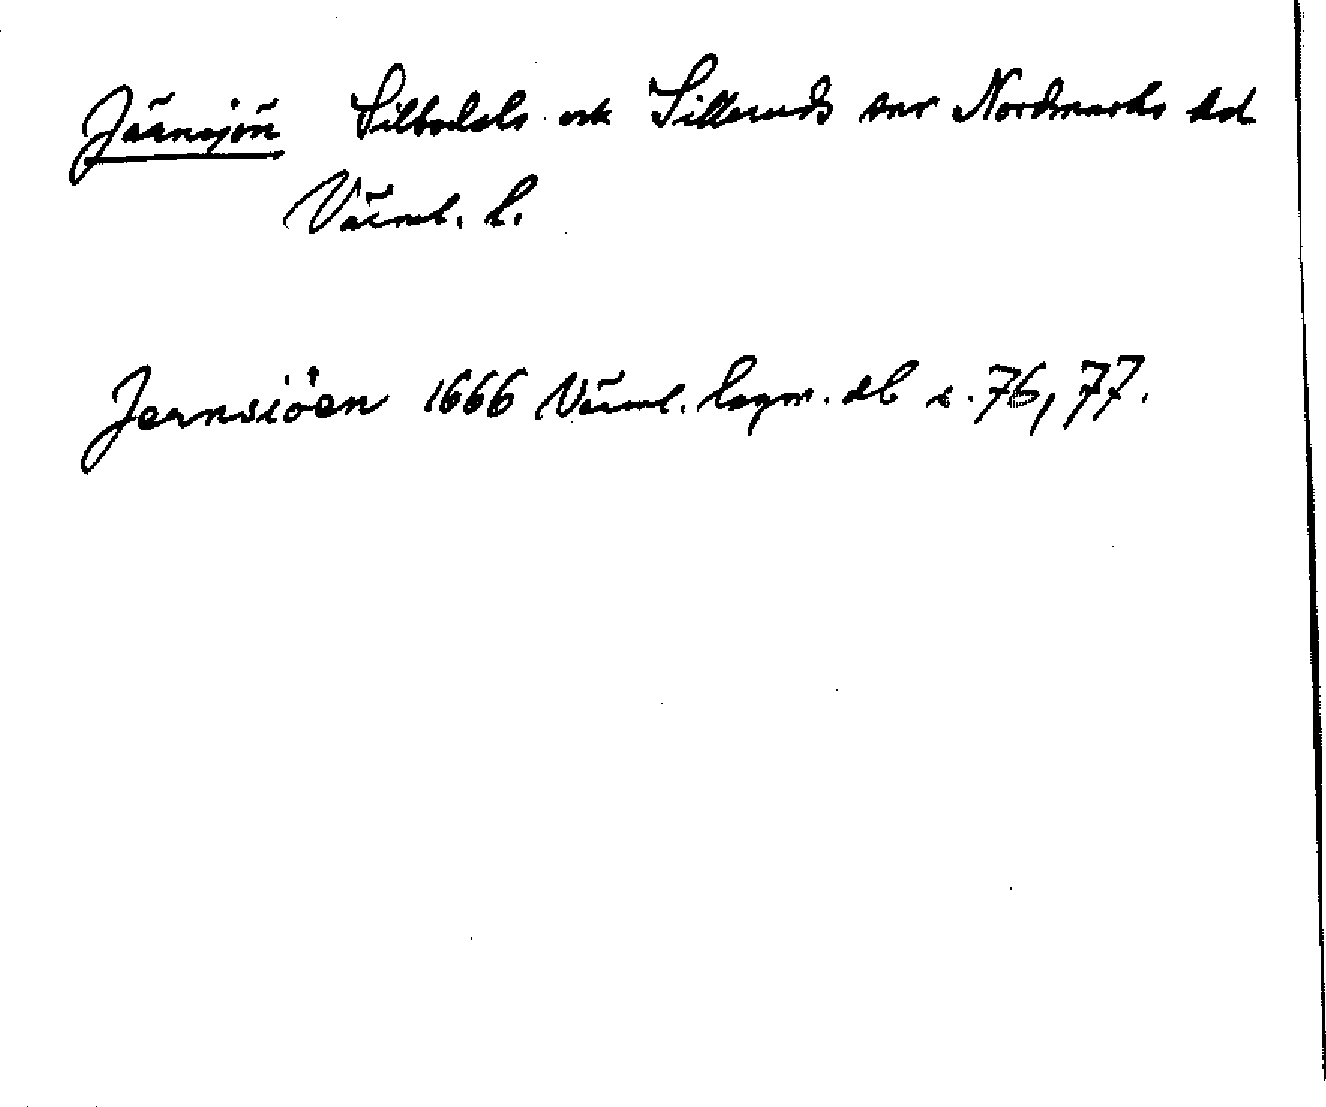 Järnsjön Silbodals och Silleruds snr Nordmarks hd
Värml. l.
Jernsiöen 1666 Värml. lagm. db s. 76, 77.